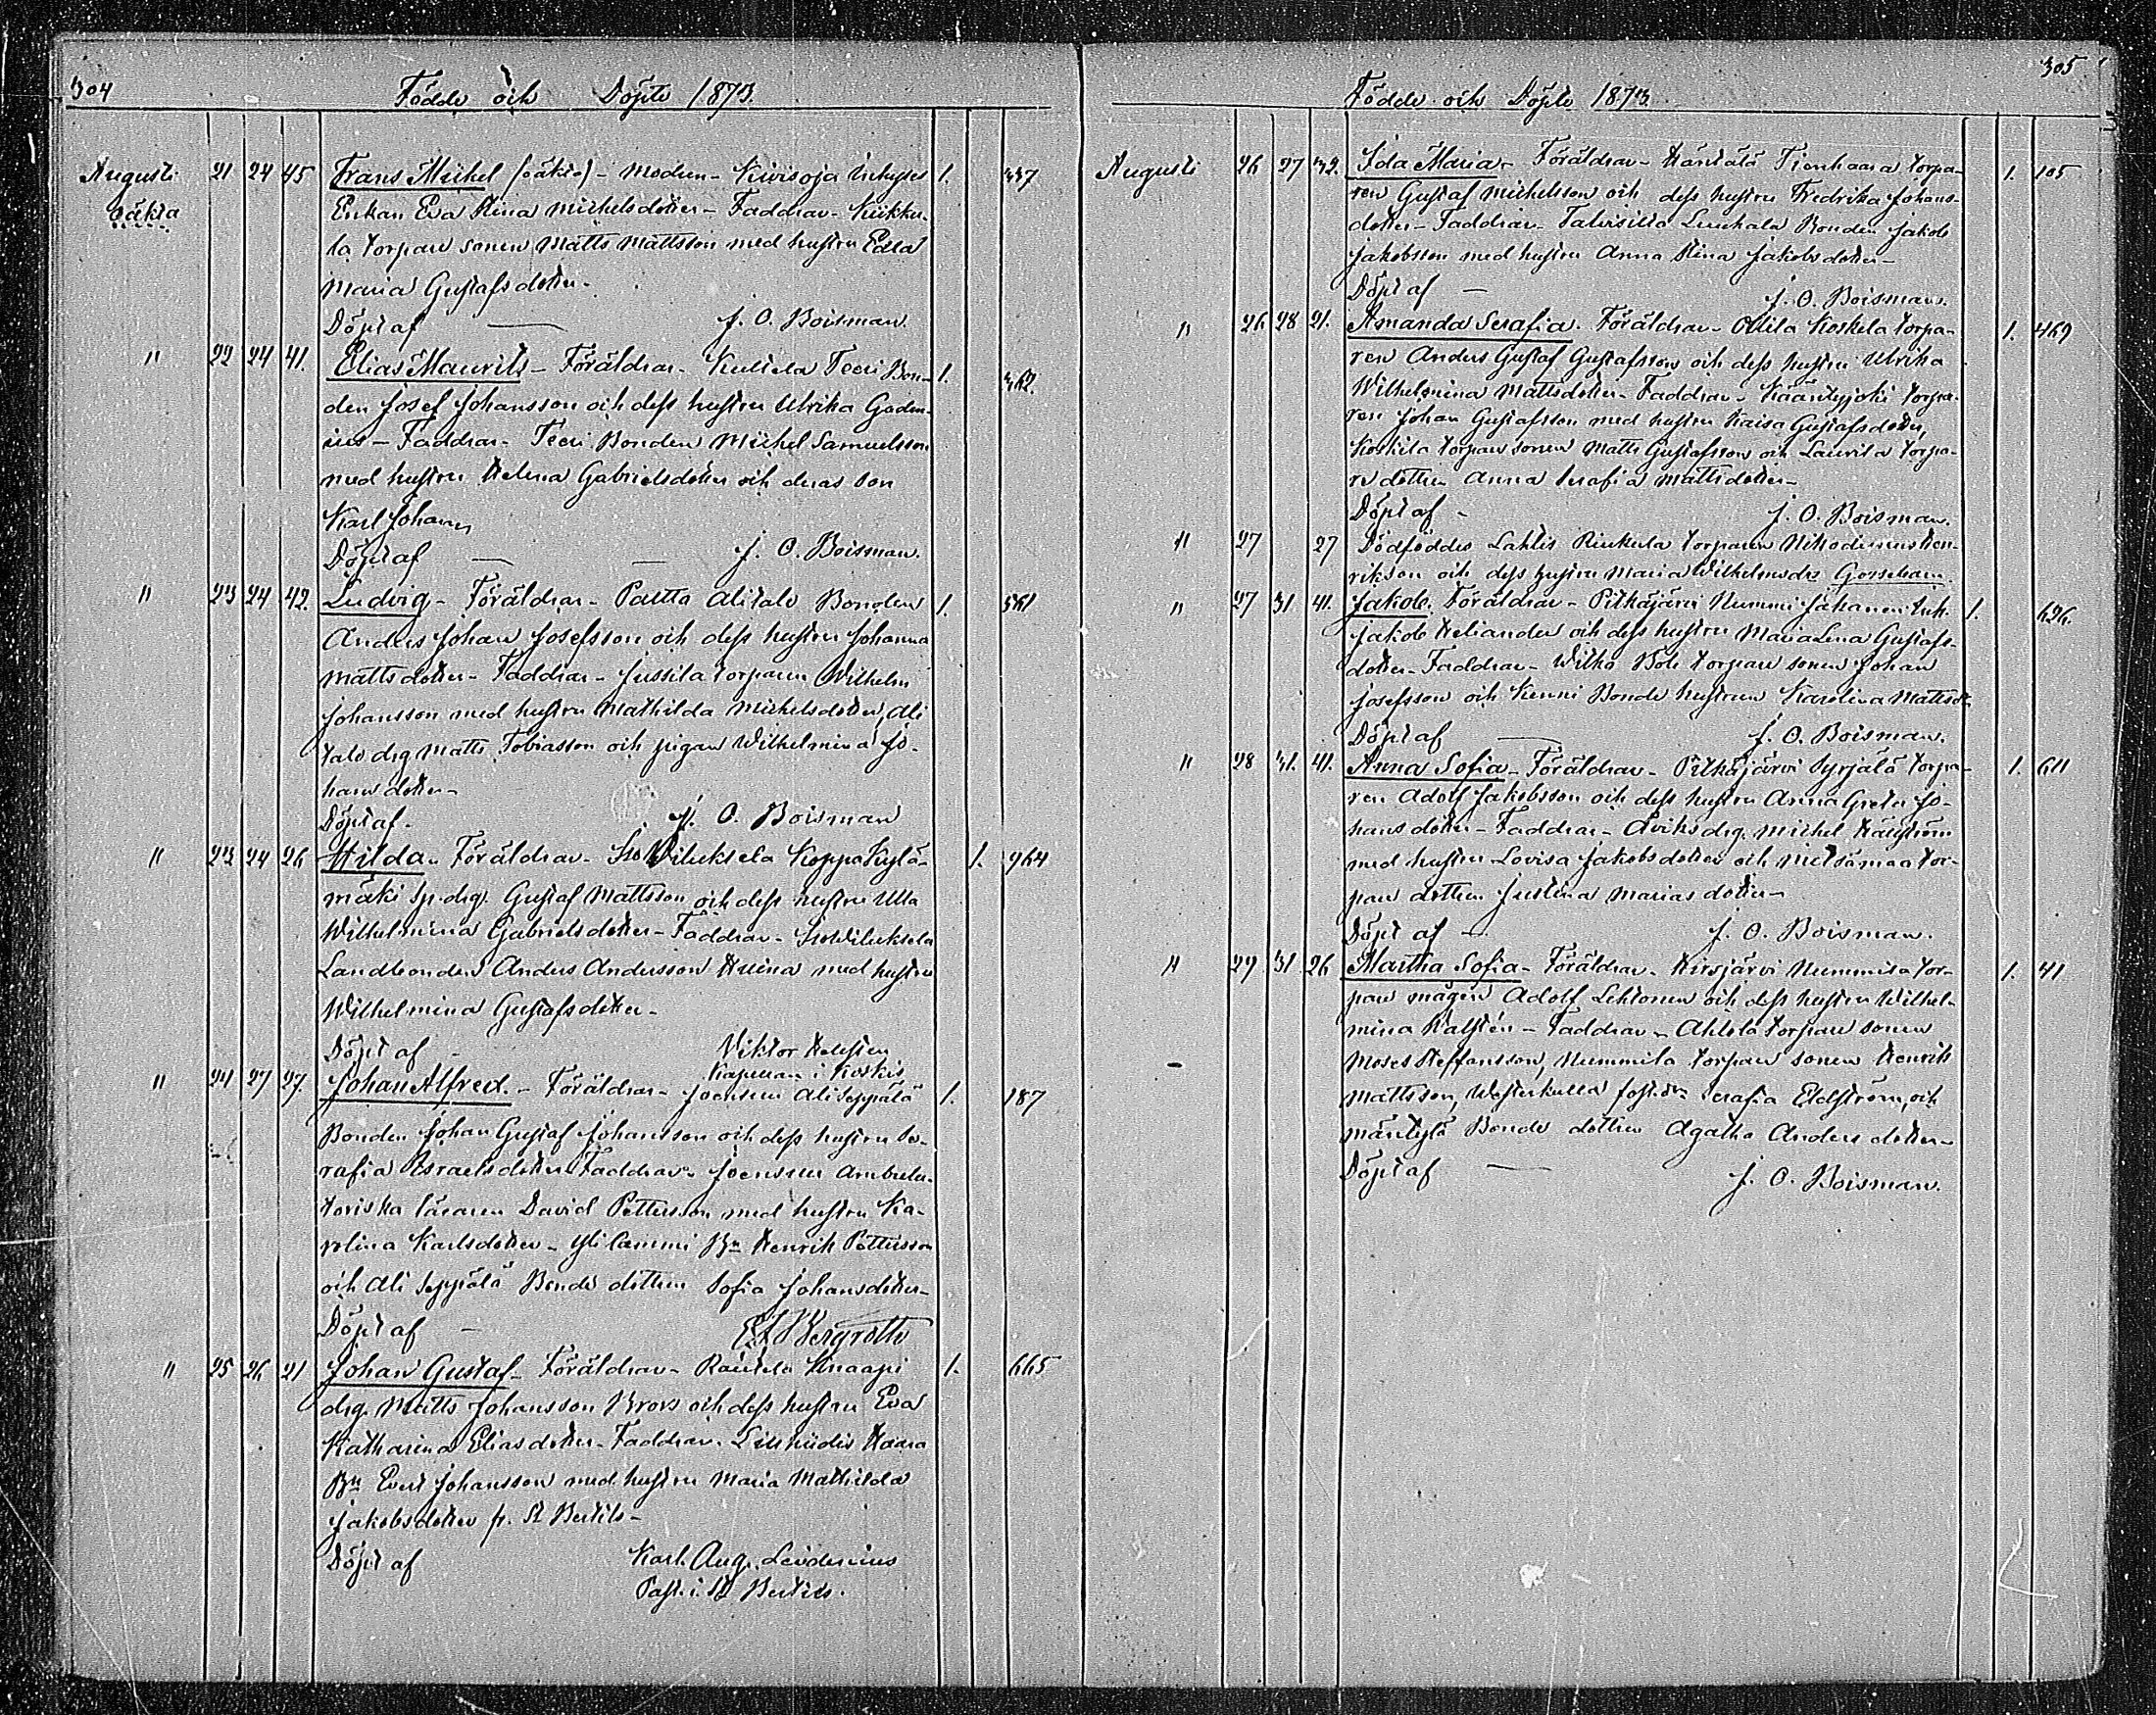 304
Födde och Döpte 1873.
Augusti 21 24 45 Frans Michel (oäkta) - Modren - Kivisoja Inhyses 1. 337
oäkta Enkan Eva Stina Michelsdotter - Faddrar - Kukku-
la torpare sonen Matts Mattsson med hustru Edla
Maria Gustafsdotter -
Döpt af — J. O. Boisman.
" 22 24 41. Elias Maurits - Föräldrar - Teeri Bon- 1. 362.
den Josef Johansson och dess hustru Ulrika Gaden-
ius - Faddrar - Teeri Bonden Michel Samuelsson
med hustru Helena Gabrielsdotter och deras son
Karl Johan
Döpt af — — J. O. Boisman.
" 23 24 42. Ludvig - Föräldrar - Partta Alitalo Bonden 1. 561
Anders Johan Josefsson och dess hustru Johanna
Mattsdotter - Faddrar - Jussila torparen Wilhelm
Johansson med hustru Mathilda Michelsdotter, Ali
talo drg Matts Tobiasson och pigan Wilhelmina Jo-
hansdotter -
Döpt af - J. O. Boisman
" 23 24 26 Hilda - Föräldrar - Iso Wiluksela Koppa Kylä- 1. 964
mäki sp. drg. Gustaf Mattsson och dess hustru Ulla
Wilhelmina Gabrielsdotter - Faddrar - Iso Wiluksela
Landbonden Anders Andersson med hustru
Wilhelmina Gustafsdotter -
Döpt af - Viktor
Kapellan i Koskis
" 24 27 27. Johan Alfred. - Föräldrar - Joensuu Ali Seppälä 1. 187
Bonden Johan Gustaf Johansson och dess hustru Se-
rafia Israelsdotter Faddrar - Joensuu Ambula-
toriska läraren David Pettersson med hustru Ka-
rolina Karlsdotter - Yli Lammi Bn Henrik Pettersson
och Ali Seppälä Bonde dottren Sofia Johansdotter -
Döpt af - Bergroth
" 25 26 21 Johan Gustaf - Föräldrar - Raukela Knaapi 1. 665
drg. Matts Johansson Brors och dess hustru Eva
Katharina Eliasdotter - Faddrar - Haara
Bn Evert Johansson med hustru Maria Mathilda
Jakobsdotter fr. St Bertils -
Döpt af Karl Aug. Leidenius
Past. i St Bertils.
305
Födde och Döpte 1873.
Augusti 26 27 32. Ida Maria - Föräldrar - Häntälä Tienhaara torpa- 1. 105
ren Gustaf Michelsson och dess hustru Fredrika Johans-
dotter - Faddrar - Talvisilta Luukala Bonden Jakob
Jakobsson med hustru Anna Stina Jakobsdotter -
Döpt af — J. O. Boisman.
" 26 28 21. Amanda Serafia. Föräldrar - Ollila Koskela torpa- 1. 469
ren Anders Gustaf Gustafsson och dess hustru Ulrika
Wilhelmina Mattsdotter - Faddrar - Kääntyjoki torpa-
ren Johan Gustafsson med hustru Kaisa Gustafsdotter,
Koskela torpare sonen Matts Gustafsson och Laurila torpa-
re dottren Anna Serafia Mattsdotter -
Döpt af - J. O. Boisman.
" 27 27 Dödföddes Lahtis Rinkula torparen Nikodemus Hen-
rikson och dess hustru Maria Wilhelmsdr Gossebarn.
" 27 31 41. Jakob. Föräldrar - Pitkäjärvi Nummi Inh. 1. 626.
Jakob Heliander och dess hustru Maria Lena Gustafs-
dotter - Faddrar - Wilko Bole torpare sonen Johan
Josefsson och Kenni Bonde hustrun Karolina Mattsdr
Döpt af — J. O. Boisman.
" 28 31. 41. Anna Sofia - Föräldrar - Pitkäjärvi Syrjälä torpa- 1. 611
ren Adolf Jakobsson och dess hustru Anna Greta Jo-
hansdotter - Faddrar - Åviks drg. Michel
med hustru Lovisa Jakobsdotter och Metsämaa tor-
pare dottren Justina Mariasdotter -
Döpt af - J. O. Boisman.
" 29 31 26 Martha Sofia - Föräldrar - Hirsjärvi Nummila tor- 1. 41
pare mågen Adolf Lehtonen och dess hustru Wilhel-
mina - Faddrar - Ahlola torpare sonen
Moses Steffansson, Nummila torpare sonen Henrik
Mattsson, Westerkulla fost.dr Serafia Eldström, och
Mäntylä Bonde dottren Agatha Andersdotter -
Döpt af — J. O. Boisman.